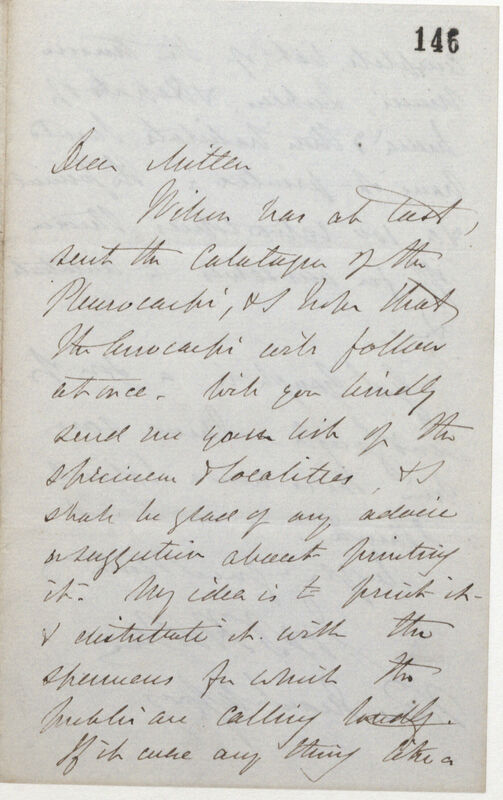 146
Dear Mitten
Wilson has at last,
sent the Catalogue of the
Pleurocarpi, & I hope that
the Acrocarpi will follow
at once. Will you kindly
send me your list of the
specimens & localities, & I
shall be glad of any advice
or suggestion about printing
it. My idea is to print it
& distribute it with the
specimens for which the
public are calling loudly.
If it were any thing like a